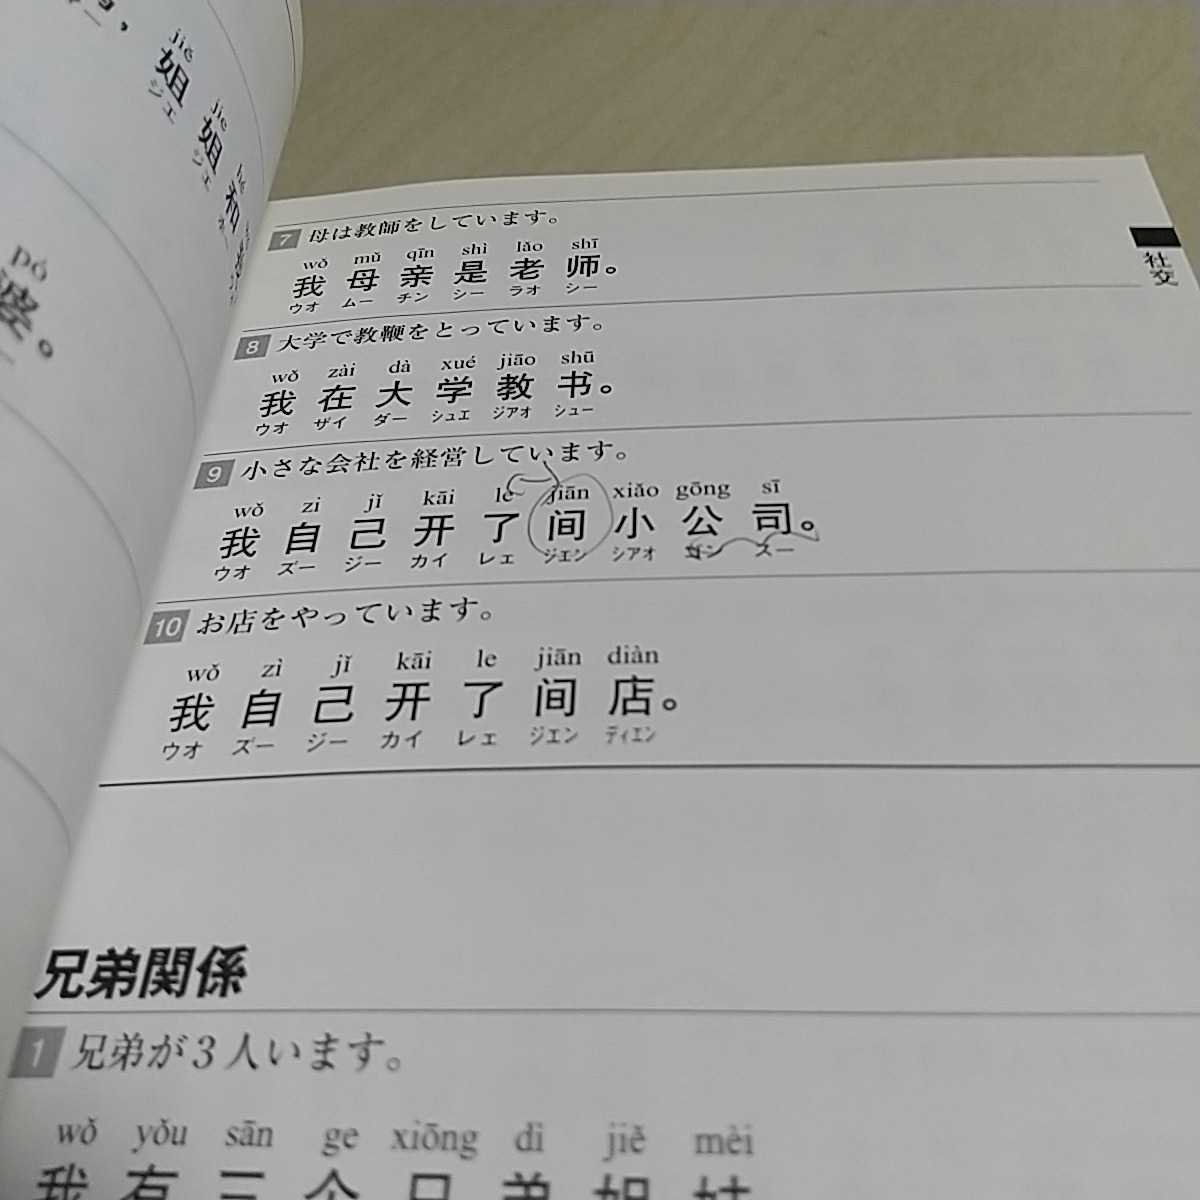 jiě jiě hé
姐姐和
ジエ ジエ
pó
婆。
社交
7 母は教師をしています。
wǒ mǔ qīn shì lǎo shī
我母亲是老师。
ウオ ムー チン シー ラオ シー
8 大学で教鞭をとっています。
wǒ zài dà xué jiāo shū
我在大学教书。
ウオ ザイ ダー シュエ ジアオ シュー
9 小さな会社を経営しています。
wǒ zi jǐ kāi le jiān xiǎo gōng sī
我自己开了间小公司。
ウオ ズー ジー カイ レェ ジエン シアオ ゴン スー
10 お店をやっています。
wǒ zì jǐ kāi le jiān diàn
我自己开了间店。
ウオ ズー ジー カイ レェ ジエン ディエン
兄弟関係
1 兄弟が3人います。
wǒ yǒu sān ge xiōng dì jiě mèi
我有三个兄弟姐妹